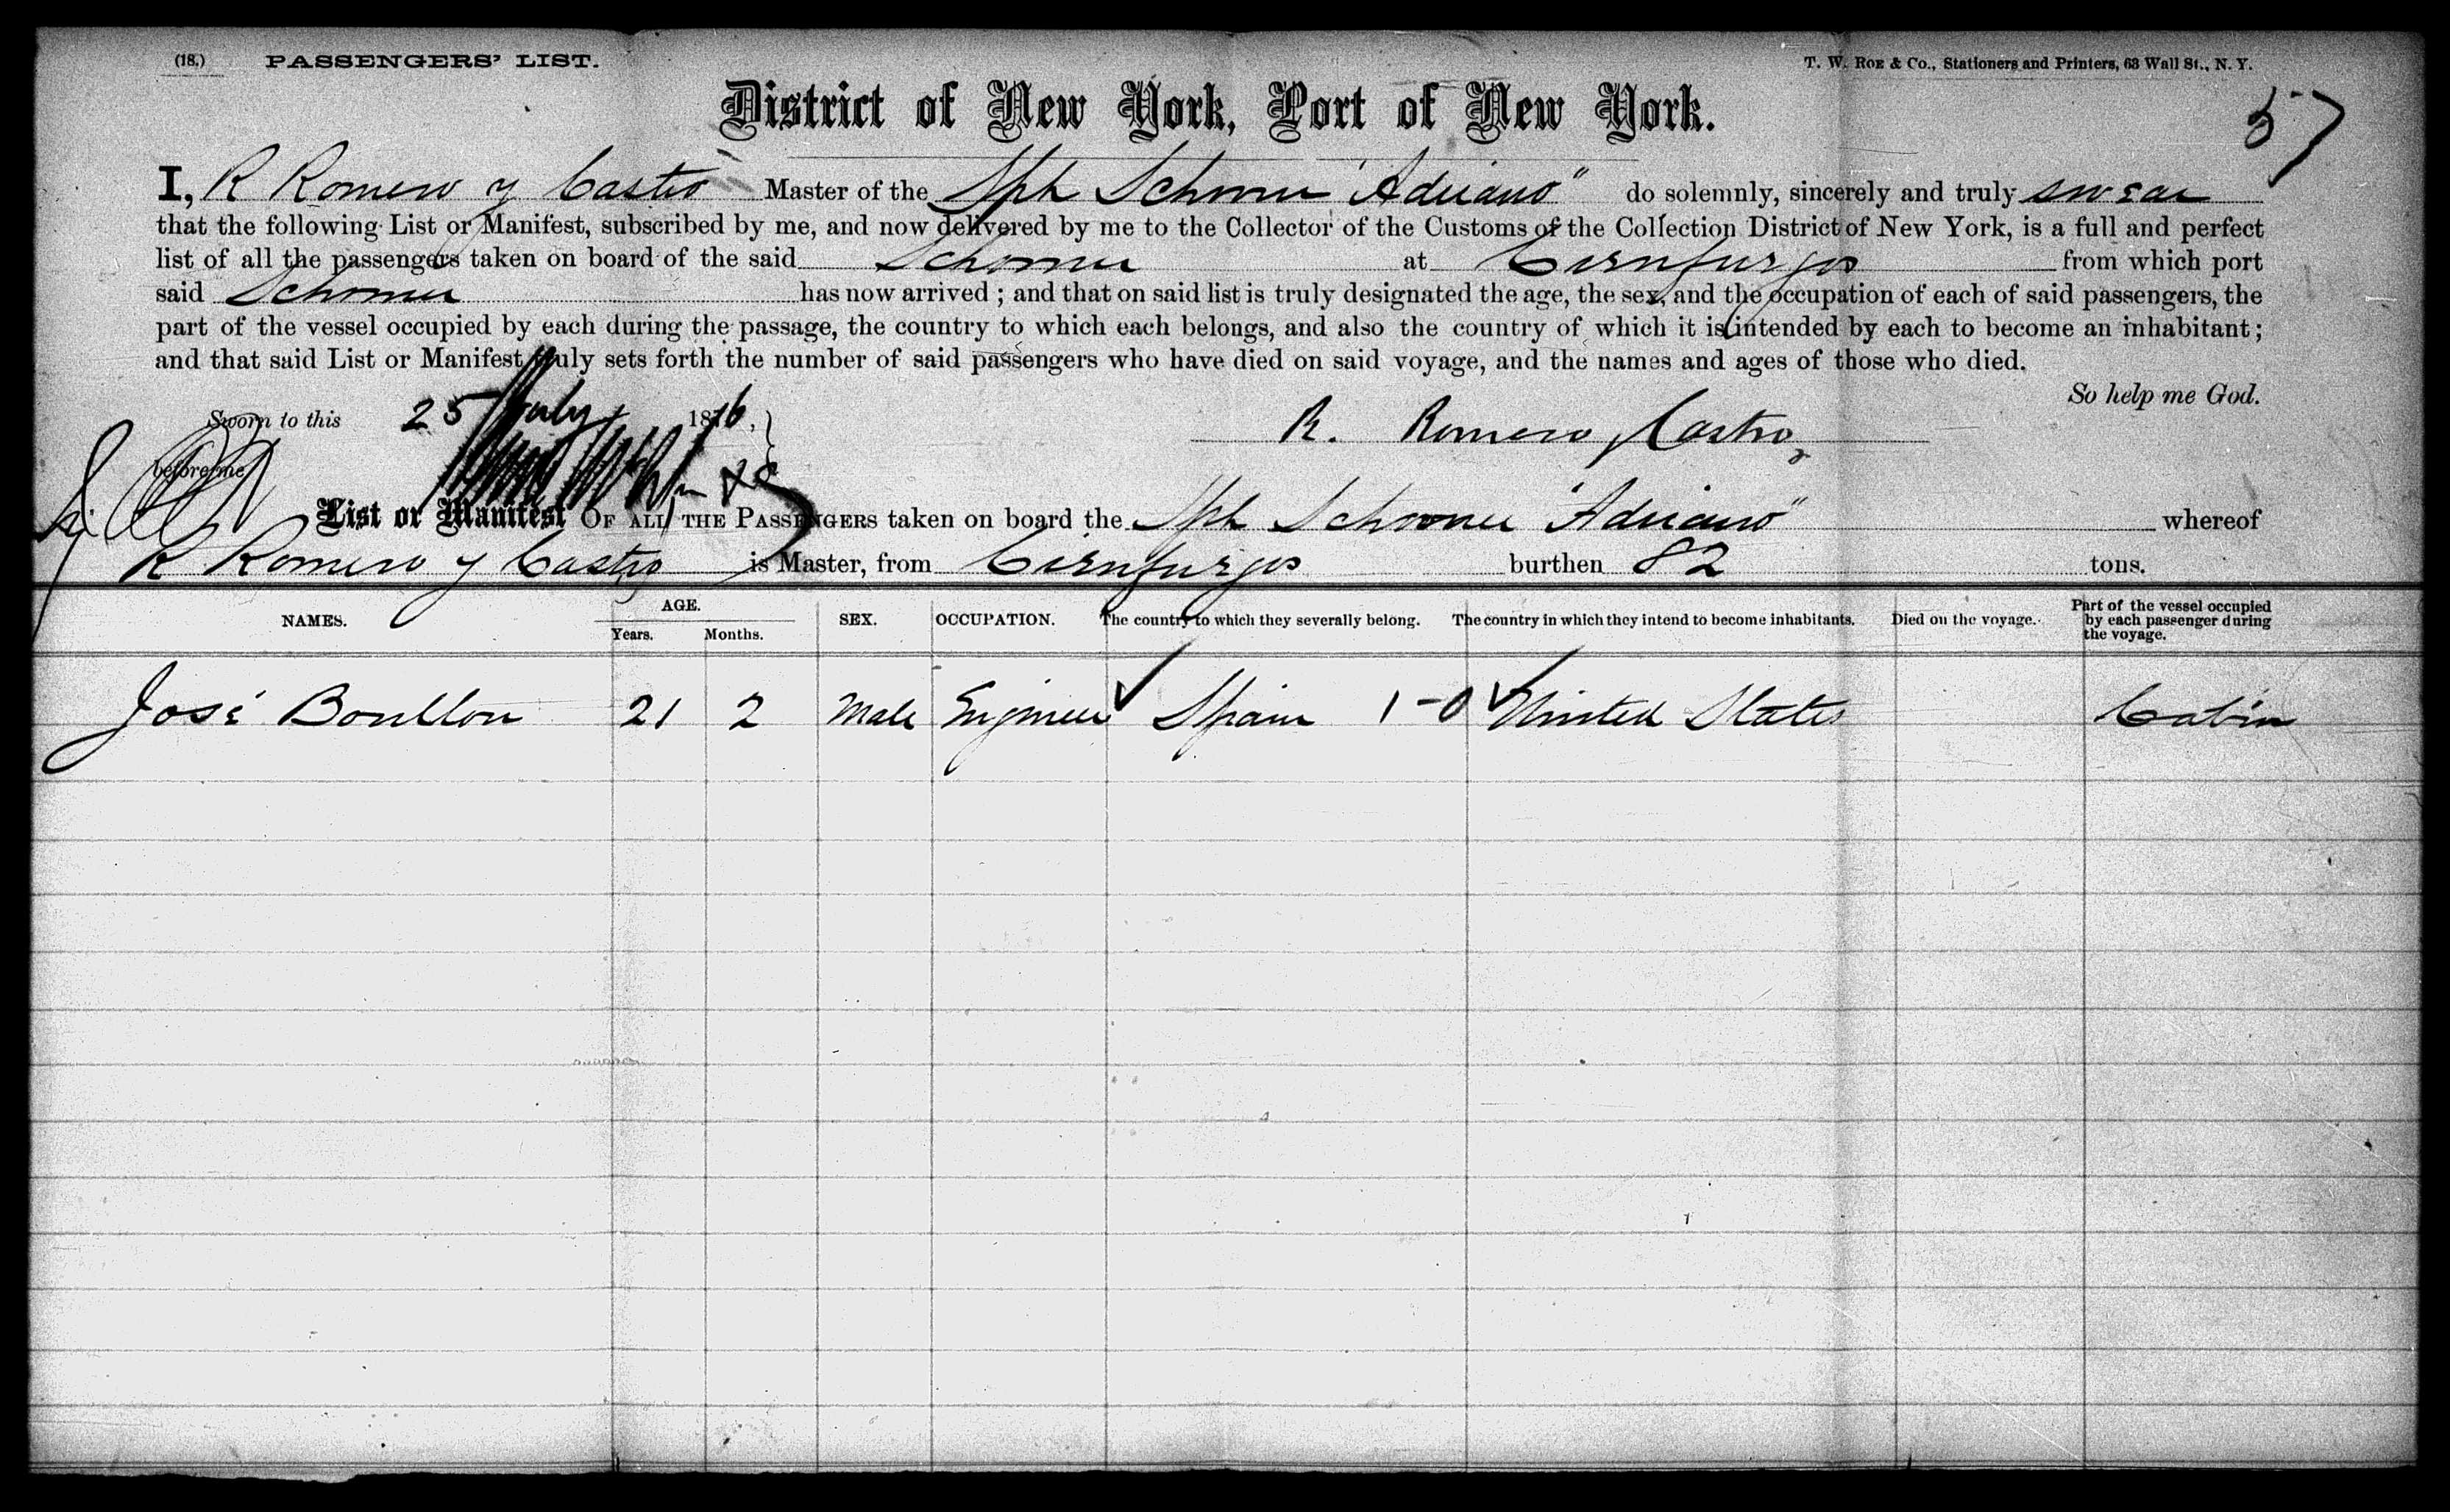 (18.) PASSENGERS' LIST. T. W. ROE & Co., Stationers and Printers, 63 Wall St., N. Y.
District of New York, Port of New York.
57
I, R Romero y Castro Master of the Sph Schooner "Adriano" do solemnly, sincerely and truly swear
that the following List or Manifest, subscribed by me, and now delivered by me to the Collector of the Customs of the Collection District of New York, is a full and perfect
list of all the passengers taken on board of the said Schooner at Cienfuegos from which port
said Schooner has now arrived; and that on said list is truly designated the age, the sex, and the occupation of each of said passengers, the
part of the vessel occupied by each during the passage, the country to which each belongs, and also the country of which it is intended by each to become an inhabitant;
and that said List or Manifest truly sets forth the number of said passengers who have died on said voyage, and the names and ages of those who died.
So help me God.
Sworn to this 25 July 1876,
R. Romero y Castro
before me
List or Manifest OF ALL THE PASSENGERS taken on board the Sph Schooner "Adriano" whereof
R Romero y Castro is Master, from Cienfuegos burthen 82 tons.
NAMES. AGE. Years. Months. SEX. OCCUPATION. The country to which they severally belong. The country in which they intend to become inhabitants. Died on the voyage. Part of the vessel occupied by each passenger during the voyage.
José Boullon 21 2 Male Engineer Spain 1-0 United States Cabin